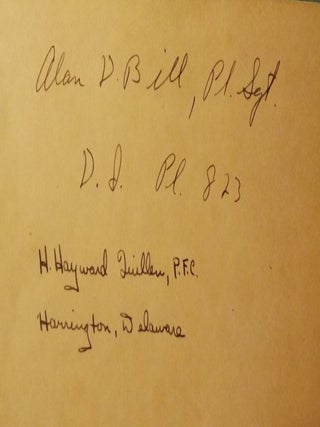 Alan D. Bill, Pl. Sgt.
D. I. Pl. 823
H. Hayward Quillen, P.F.C.
Harrington, Delaware